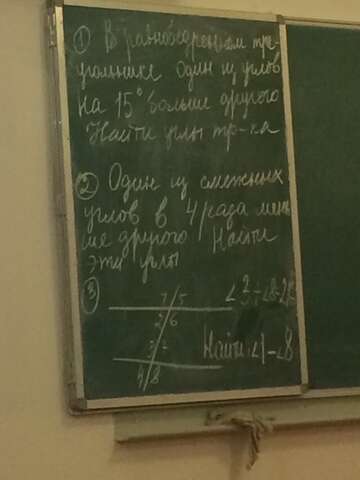 ① В равнобедренном тре-
угольнике один из углов
на 15° больше другого
Найти углы тр-ка
② Один из смежных
углов в 4 раза мень
ше другого Найти
эти углы
③
Найти ∠1-∠8